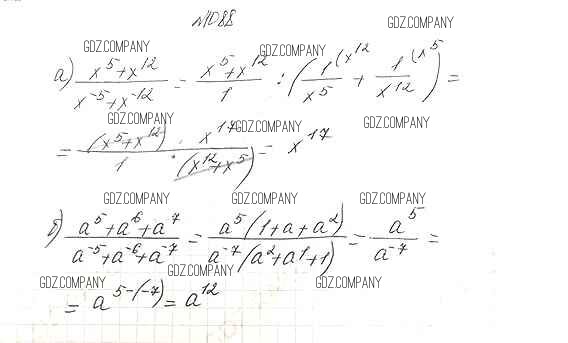 №1088
GDZ.COMPANY
GDZ.COMPANY GDZ.COMPANY
а) (x^5+x^12)/(x^-5+x^-12) = (x^5+x^12)/1 : (1^(x^12/x^5 + 1^(x^5/x^12) =
GDZ.COMPANY GDZ.COMPANY GDZ.COMPANY
= (x^5+x^12)/1 · x^17/(x^12+x^5) = x^17
GDZ.COMPANY GDZ.COMPANY GDZ.COMPANY
б) (a^5+a^6+a^7)/(a^-5+a^-6+a^-7) = a^5(1+a+a^2)/a^-7(a^2+a^1+1) = a^5/a^-7 =
GDZ.COMPANY GDZ.COMPANY GDZ.COMPANY
= a^5-(-7) = a^12